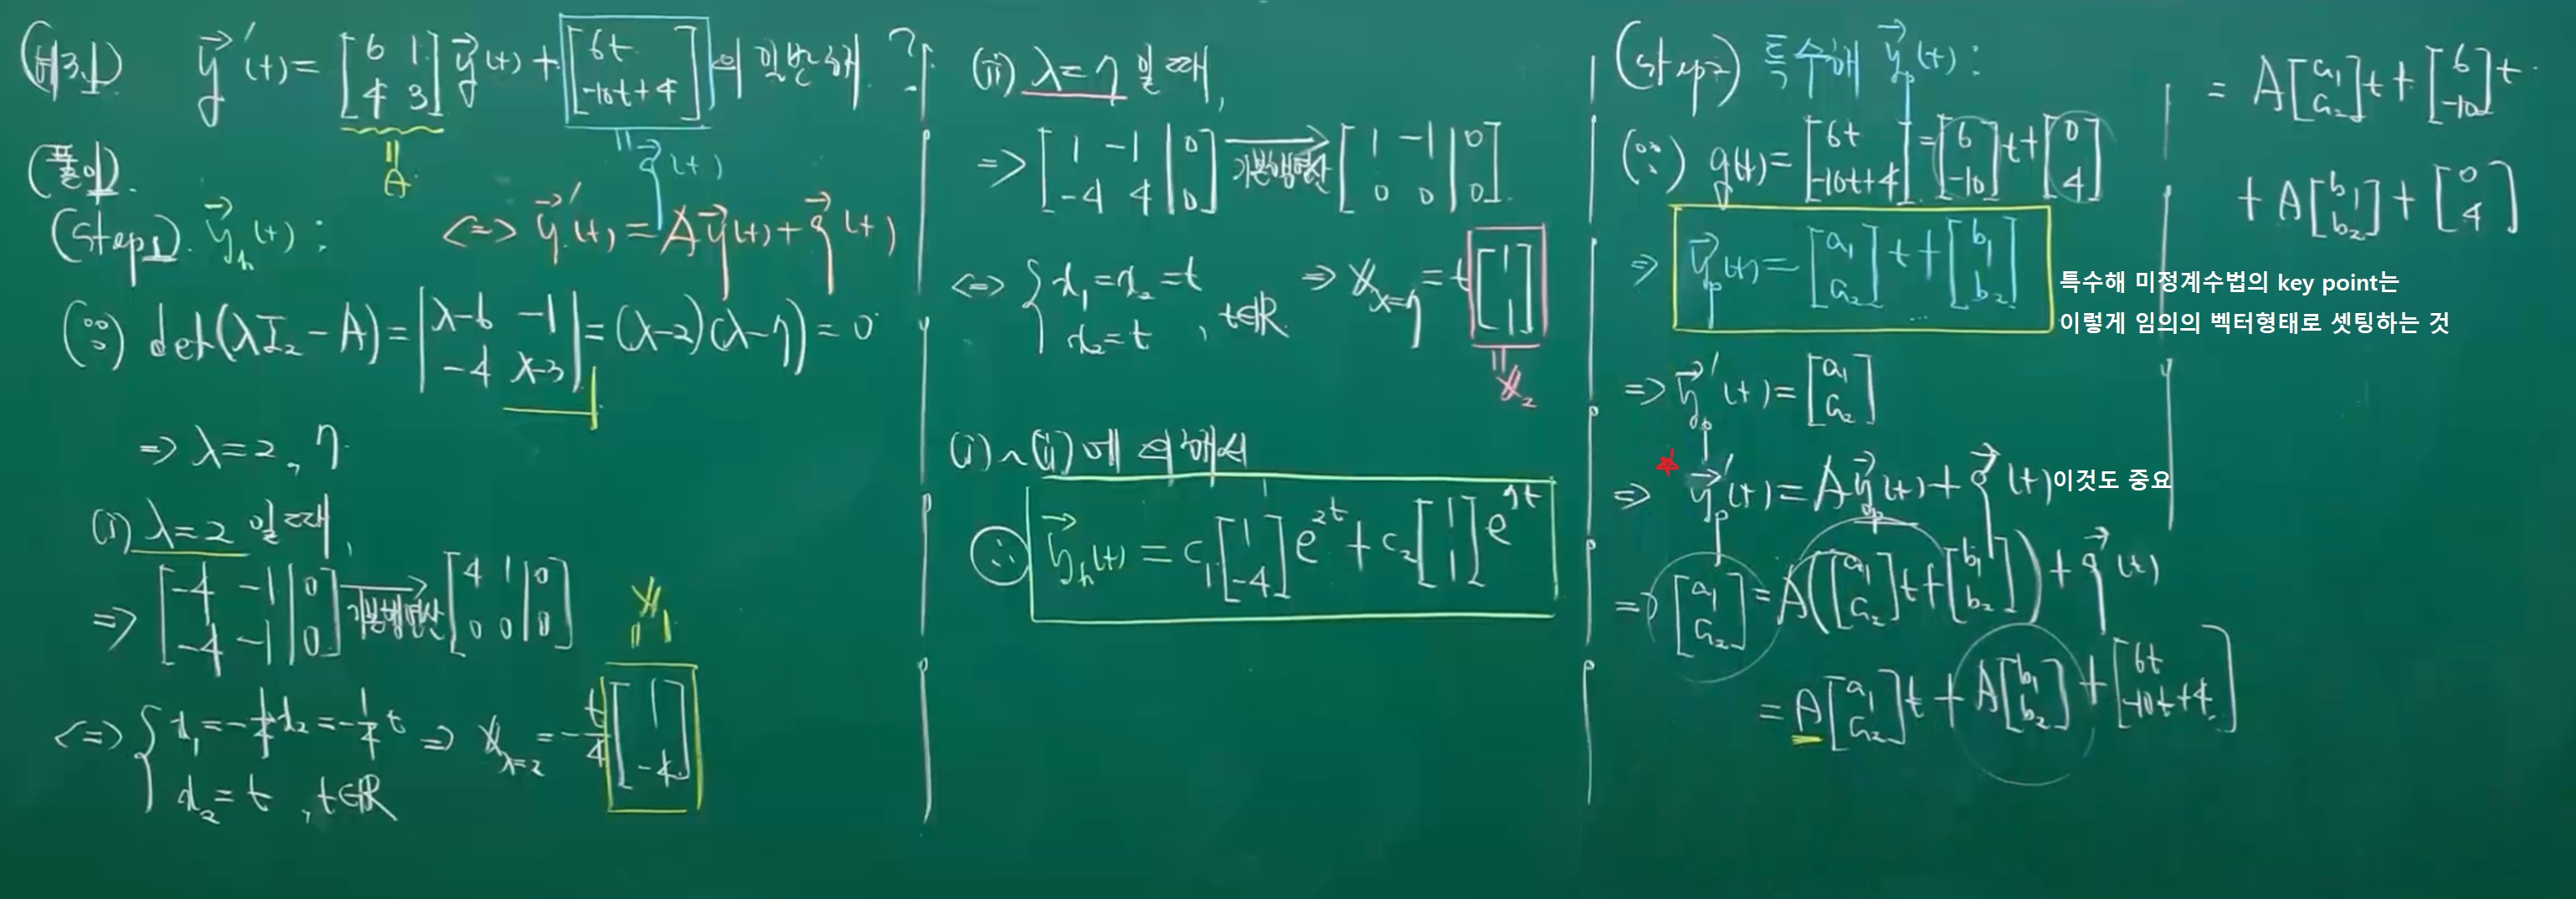 (예3.1) y⃗'(t) = [6 1; 4 3] y⃗(t) + [6t; -10t+4] 의 일반해 ?
= A
= g⃗(t)
(풀이).
(step1). y⃗_h(t) : <=> y⃗'(t) = A y⃗(t) + g⃗(t)
(∵) det(λI₂ - A) = |λ-6 -1; -4 λ-3| = (λ-2)(λ-7) = 0
=> λ = 2, 7.
(i) λ=2 일 때,
=> [-4 -1 | 0; -4 -1 | 0] 기본행연산→ [4 1 | 0; 0 0 | 0]
<=> { x₁ = -1/4 x₂ = -1/4 t
x₂ = t , t∈ℝ
=> 𝕏_{λ=2} = -t/4 [1; -4]
𝕏₁
(ii) λ=7 일 때,
=> [1 -1 | 0; -4 4 | 0] 기본행연산→ [1 -1 | 0; 0 0 | 0]
<=> { x₁ = x₂ = t
x₂ = t , t∈ℝ.
=> 𝕏_{λ=7} = t [1; 1]
= 𝕏₂
(i)~(ii)에 의해서
∴ y⃗_h(t) = c₁ [1; -4] e^{2t} + c₂ [1; 1] e^{7t}
(step2) 특수해 y⃗_p(t) :
(∵) g(t) = [6t; -10t+4] = [6; -10] t + [0; 4]
=> y⃗_p(t) = [a₁; a₂] t + [b₁; b₂]
특수해 미정계수법의 key point는
이렇게 임의의 벡터형태로 셋팅하는 것
=> y⃗_p'(t) = [a₁; a₂]
=> y⃗_p'(t) = A y⃗_p(t) + g⃗(t) 이것도 중요
=> [a₁; a₂] = A([a₁; a₂] t + [b₁; b₂]) + g⃗(t)
= A [a₁; a₂] t + A [b₁; b₂] + [6t; -10t+4]
= A [a₁; a₂] t + [6; -10] t
+ A [b₁; b₂] + [0; 4]